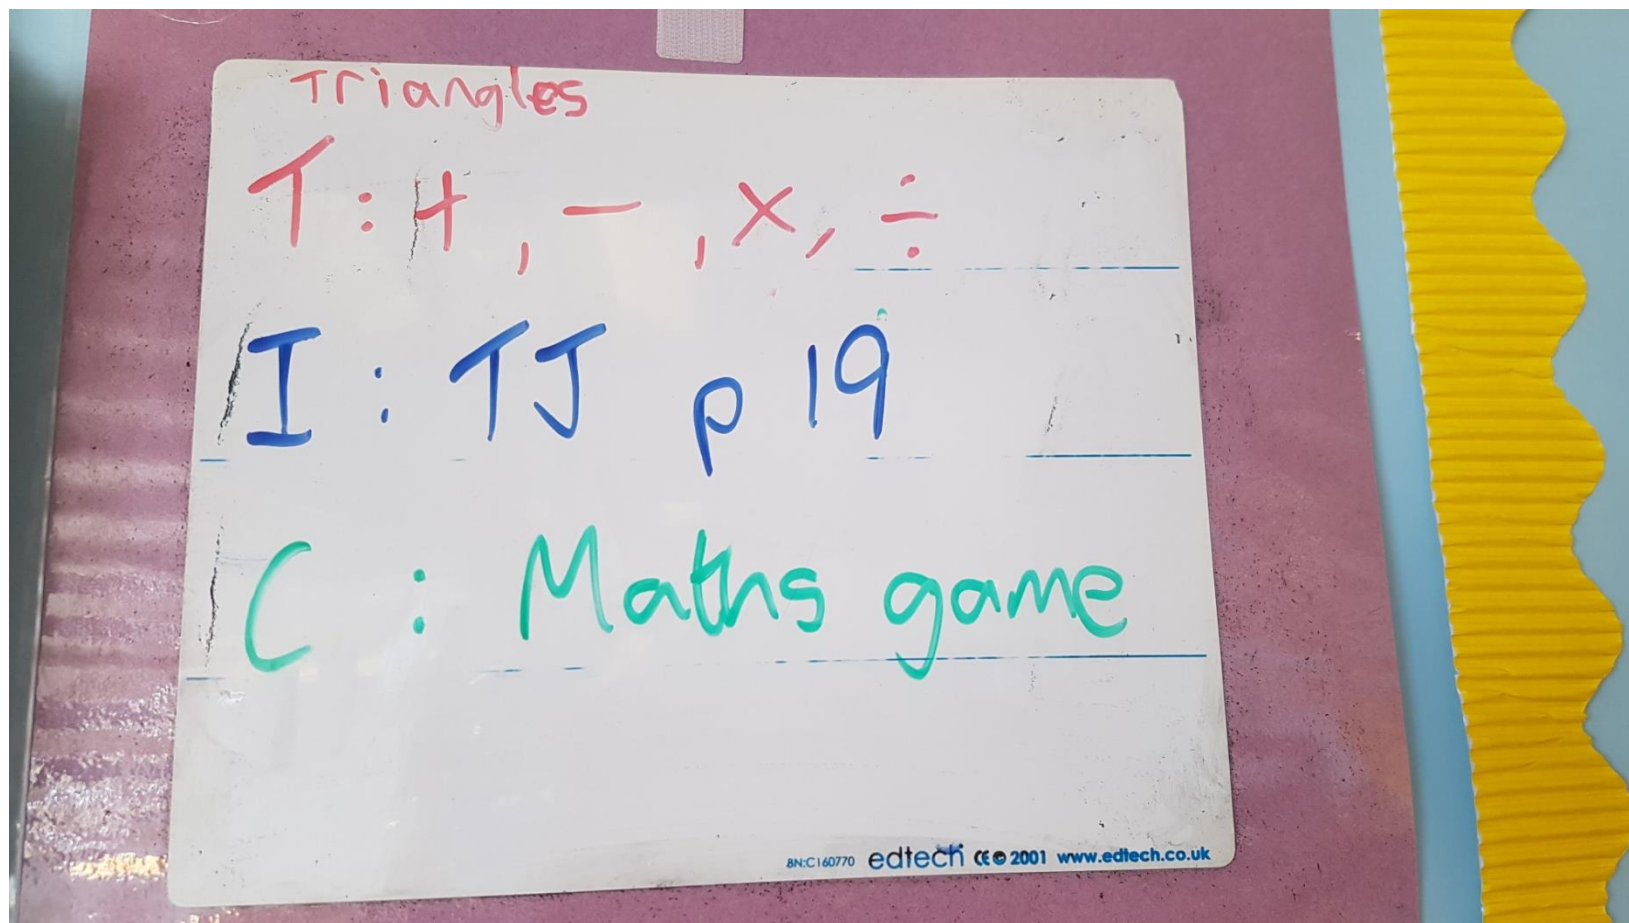 Triangles
T: +, -, ×, ÷
I: TJ p 19
C: Maths game
BN:C160770 edtech CE © 2001 www.edtech.co.uk